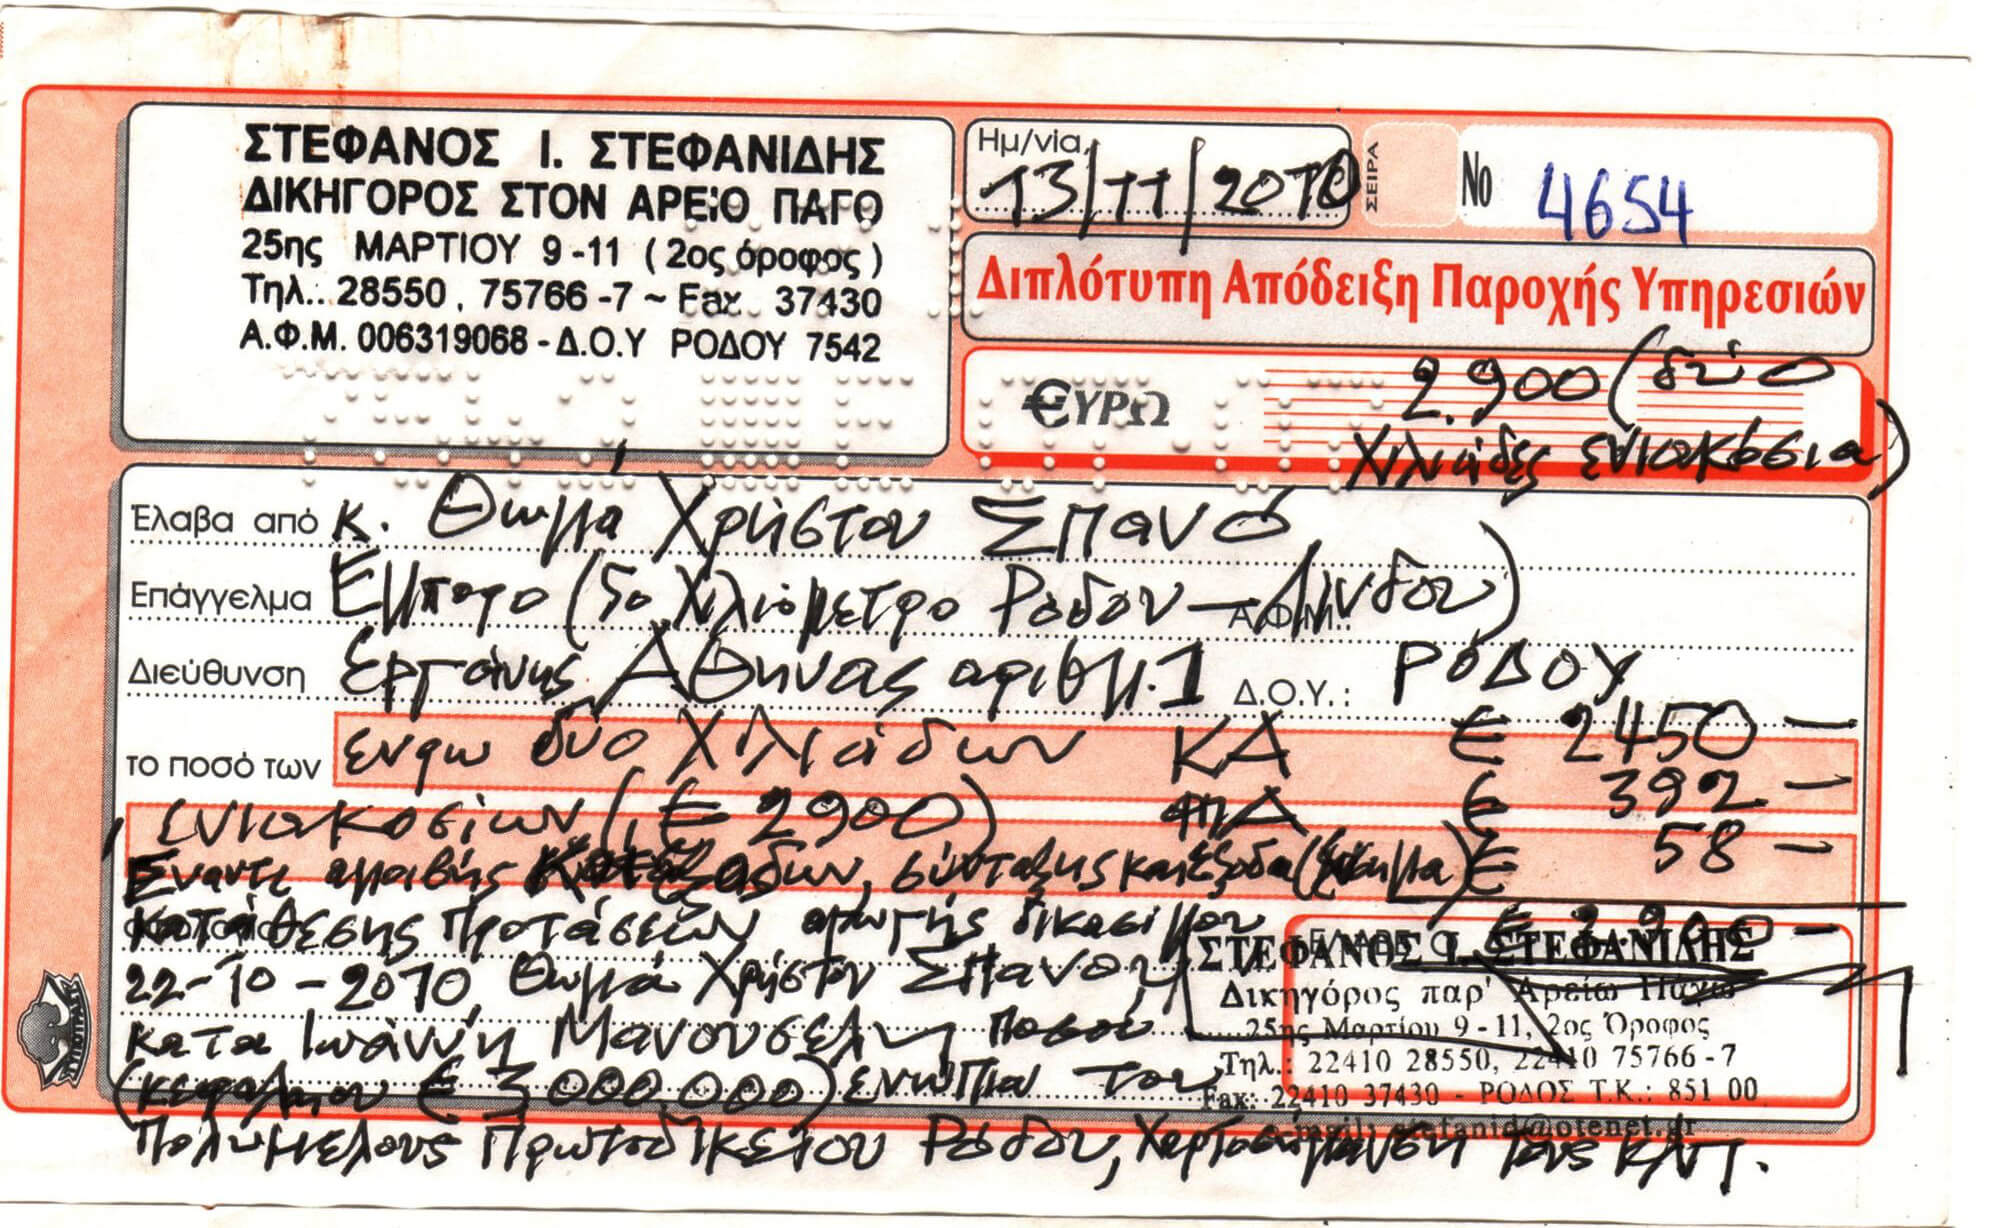 ΣΤΕΦΑΝΟΣ Ι. ΣΤΕΦΑΝΙΔΗΣ
ΔΙΚΗΓΟΡΟΣ ΣΤΟΝ ΑΡΕΙΟ ΠΑΓΟ
25ης ΜΑΡΤΙΟΥ 9-11 (2ος όροφος)
Τηλ.: 28550, 75766-7 ~ Fax. 37430
Α.Φ.Μ. 006319068 - Δ.Ο.Υ ΡΟΔΟΥ 7542
Ημ/νία
13/11/2010
ΣΕΙΡΑ
Νο 4654
Διπλότυπη Απόδειξη Παροχής Υπηρεσιών
ΕΥΡΩ 2.900 (δύο
χιλιάδες ενιακόσια)
Έλαβα από κ. Θωμά Χρήστου Σπανό
Επάγγελμα Έμπορο (5ο χιλιόμετρο Ρόδου - Λίνδου) Α.Φ.Μ.:
Διεύθυνση Εργάνης Αθηνάς αριθμ. 1 Δ.Ο.Υ.: ΡΟΔΟΥ
το ποσό των ευρω δυο χιλιάδων ΚΑ € 2450 -
ενιακοσίων (€ 2900) ΦΠΑ € 392 -
Έναντι αμοιβής σύνταξης και έξοδα € 58 -
κατάθεσης Προτάσεων δικασίμου € 2.900 -
22-10-2010 Θωμά Χρήστου Σπανού
κατα Ιωάννη Μανουσέλη ποσού
(κεφαλαίου € 3.000.000) ενώπιον του
Πολυμελούς Πρωτοδικείου Ρόδου, κλπ.
ΕΛΑΒΕ Ο
ΣΤΕΦΑΝΟΣ Ι. ΣΤΕΦΑΝΙΔΗΣ
Δικηγόρος παρ' Αρείω Πάγω
25ης Μαρτίου 9-11, 2ος Όροφος
Τηλ.: 22410 28550, 22410 75766-7
Fax: 22410 37430 - ΡΟΔΟΣ Τ.Κ.: 851 00
e-mail: stefanid@otenet.gr